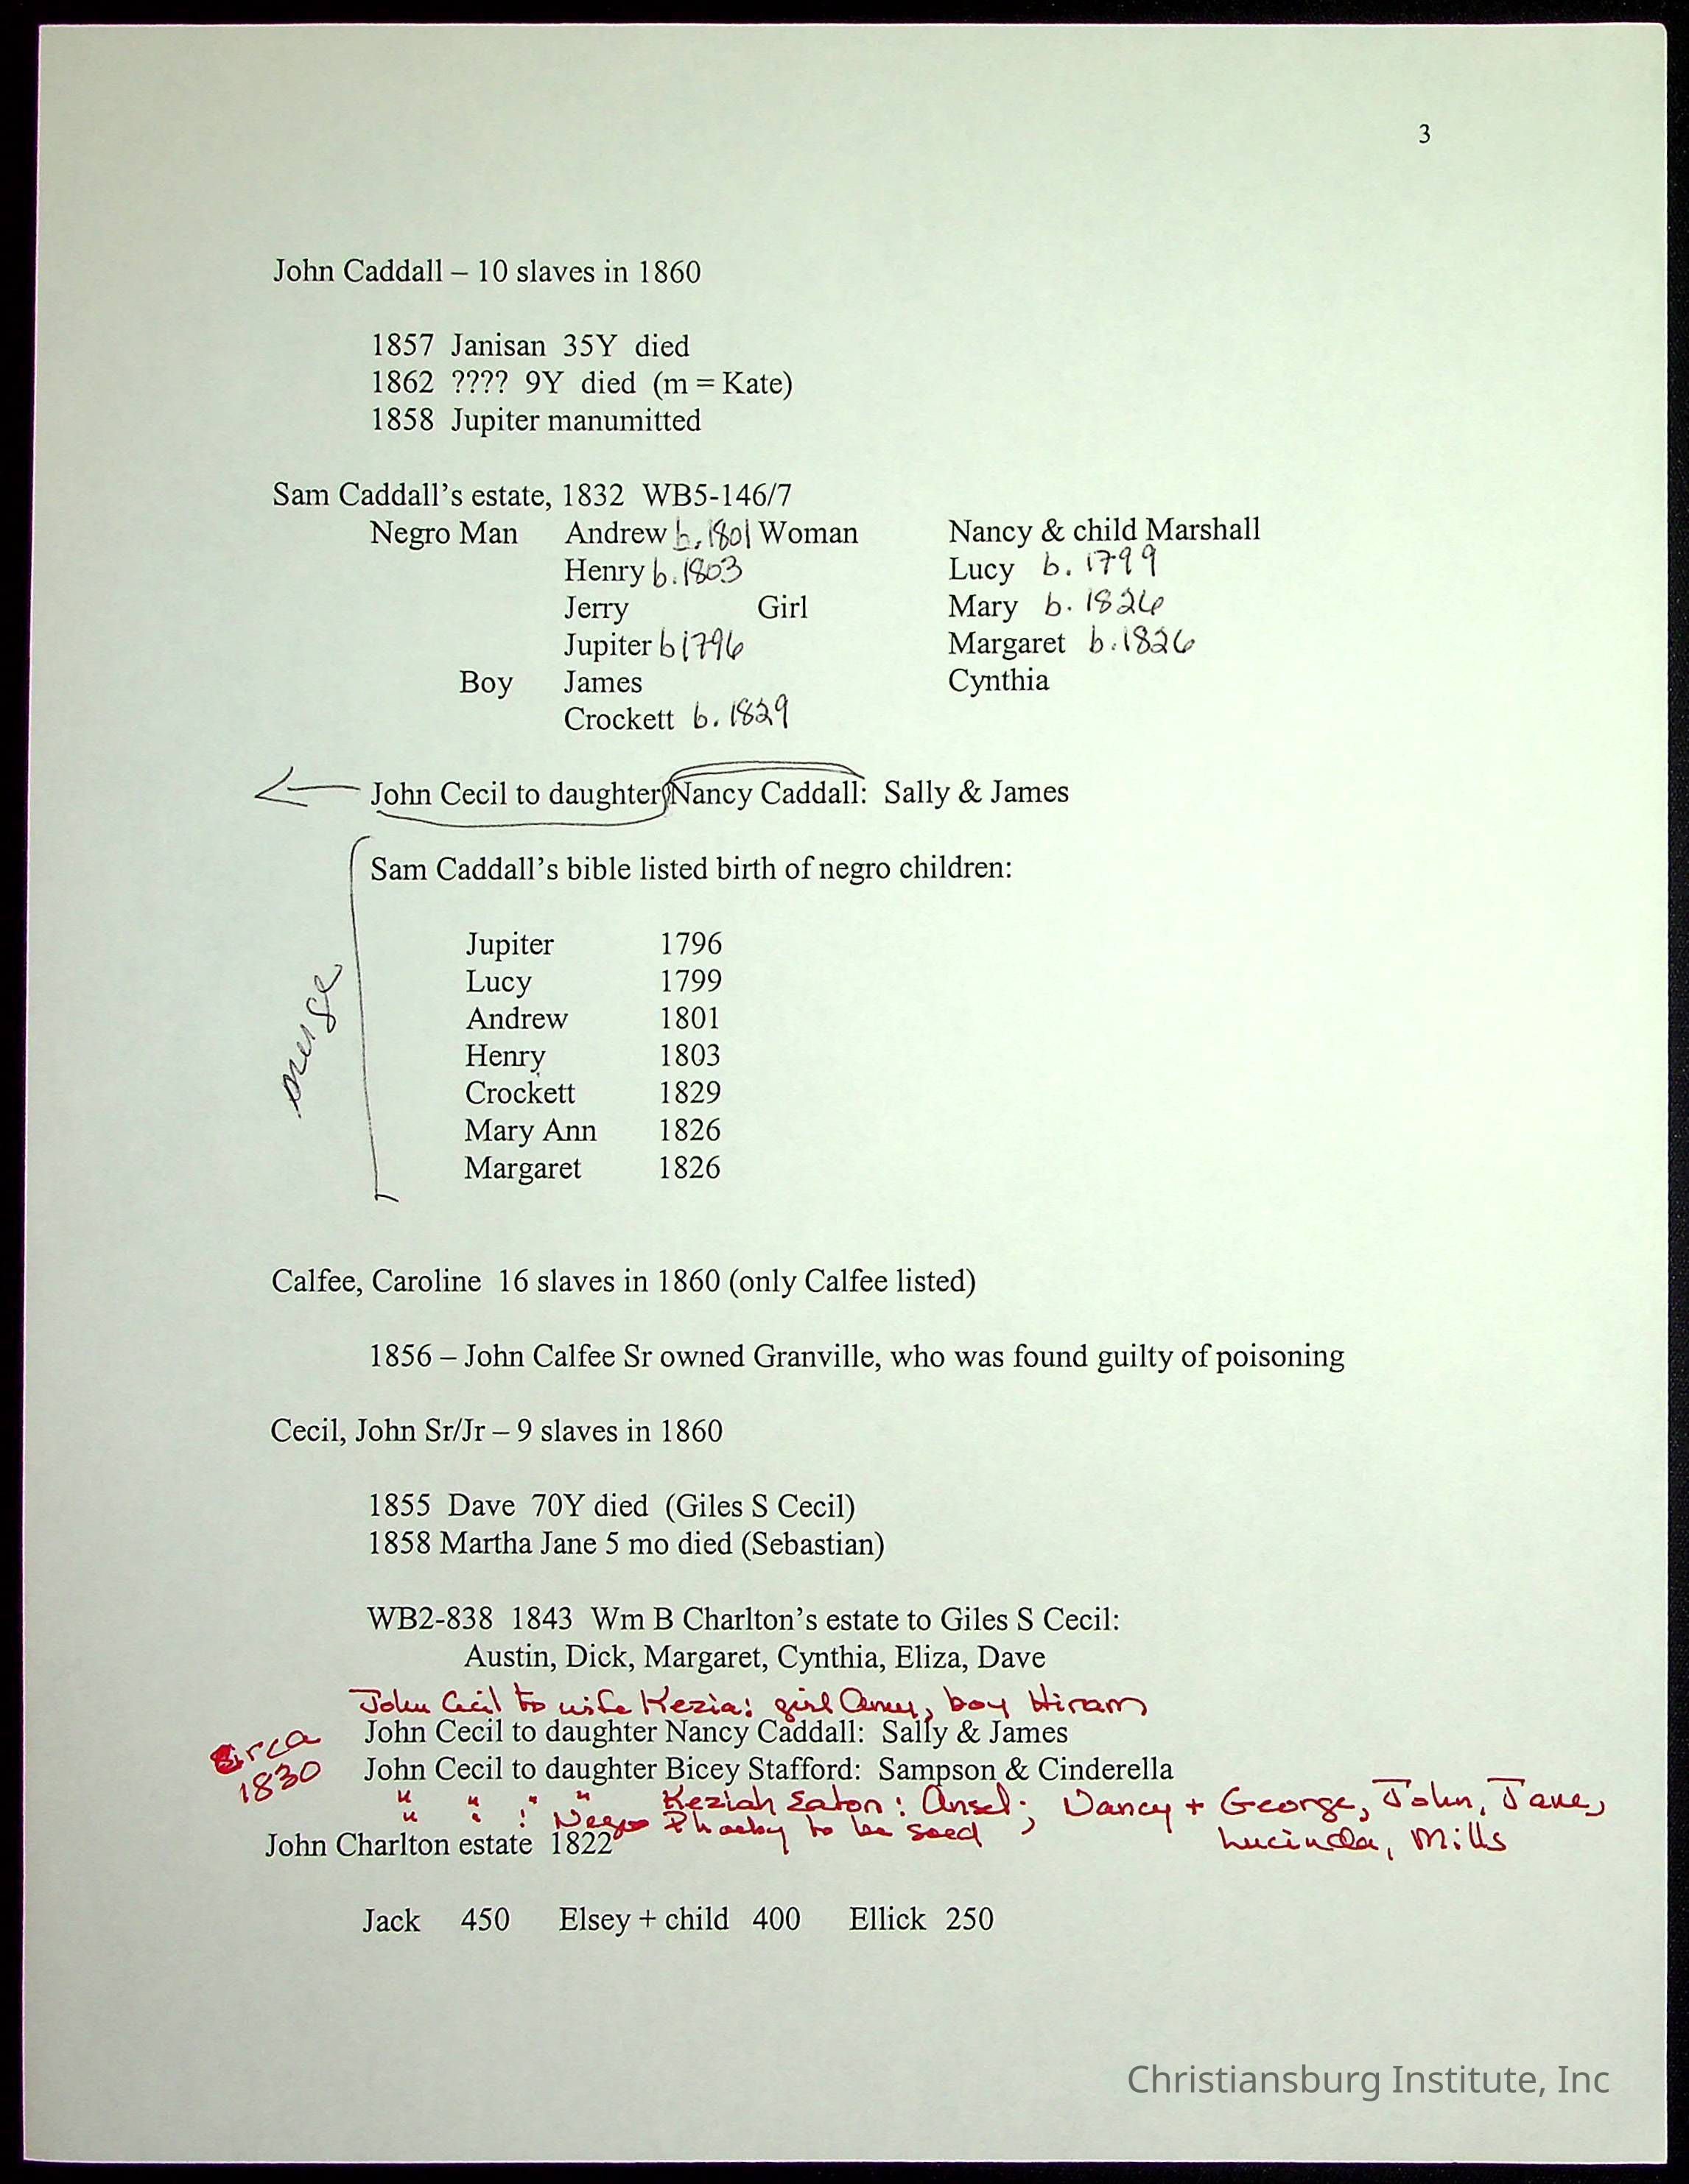 3
John Caddall – 10 slaves in 1860
1857 Janisan 35Y died
1862 ???? 9Y died (m = Kate)
1858 Jupiter manumitted
Sam Caddall's estate, 1832 WB5-146/7
Negro Man Andrew b. 1801 Woman Nancy & child Marshall
Henry b. 1803 Lucy b. 1799
Jerry Girl Mary b. 1826
Jupiter b 1796 Margaret b. 1826
Boy James Cynthia
Crockett b. 1829
John Cecil to daughter Nancy Caddall: Sally & James
Sam Caddall's bible listed birth of negro children:
Jupiter 1796
Lucy 1799
Andrew 1801
Henry 1803
Crockett 1829
Mary Ann 1826
Margaret 1826
Calfee, Caroline 16 slaves in 1860 (only Calfee listed)
1856 – John Calfee Sr owned Granville, who was found guilty of poisoning
Cecil, John Sr/Jr – 9 slaves in 1860
1855 Dave 70Y died (Giles S Cecil)
1858 Martha Jane 5 mo died (Sebastian)
WB2-838 1843 Wm B Charlton's estate to Giles S Cecil:
Austin, Dick, Margaret, Cynthia, Eliza, Dave
John Cecil to wife Kezia: girl Amy, boy Hiram
circa 1830
John Cecil to daughter Nancy Caddall: Sally & James
John Cecil to daughter Bicey Stafford: Sampson & Cinderella
" " " " Keziah Eaton: Ansel; Nancy + George, John, Jane,
" " : Negro Phoeby to be sold ; Lucinda, Mills
John Charlton estate 1822
Jack 450 Elsey + child 400 Ellick 250
Christiansburg Institute, Inc